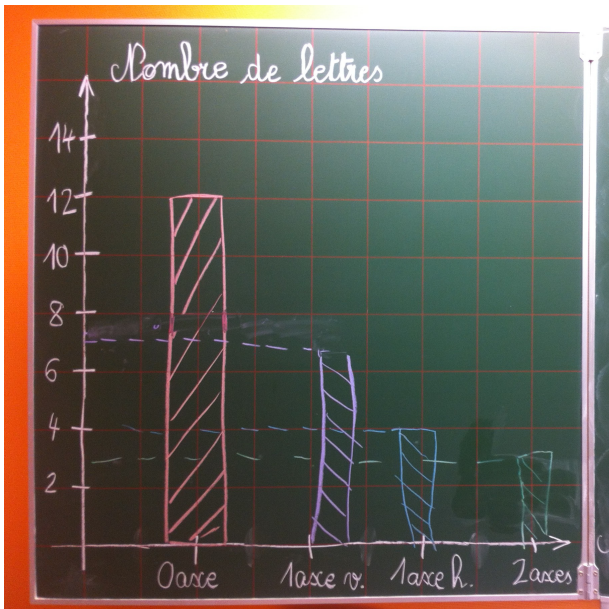 Nombre de lettres
14
12
10
8
6
4
2
0 axe 1 axe v. 1 axe h. 2 axes